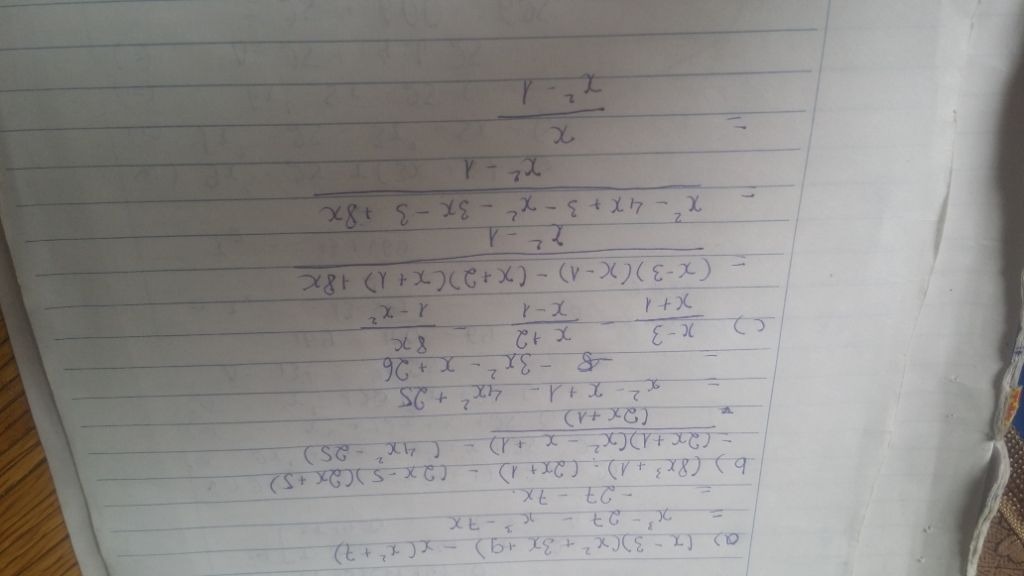 a) (x - 3)(x² + 3x + 9) - x(x² + 7)
= x³ - 27 - x³ - 7x
= - 27 - 7x.
b) (8x³ + 1) : (2x + 1) - (2x - 5)(2x + 5)
= (2x + 1)(x² - x + 1) - (4x² - 25)
(2x + 1)
= x² - x + 1 - 4x² + 25
= - 3x² - x + 26
c) x-3/x+1 - x+2/x-1 - 8x/1-x²
= (x-3)(x-1) - (x+2)(x+1) + 8x
x² - 1
= x² - 4x + 3 - x² - 3x - 3 + 8x
x² - 1
= x
x² - 1